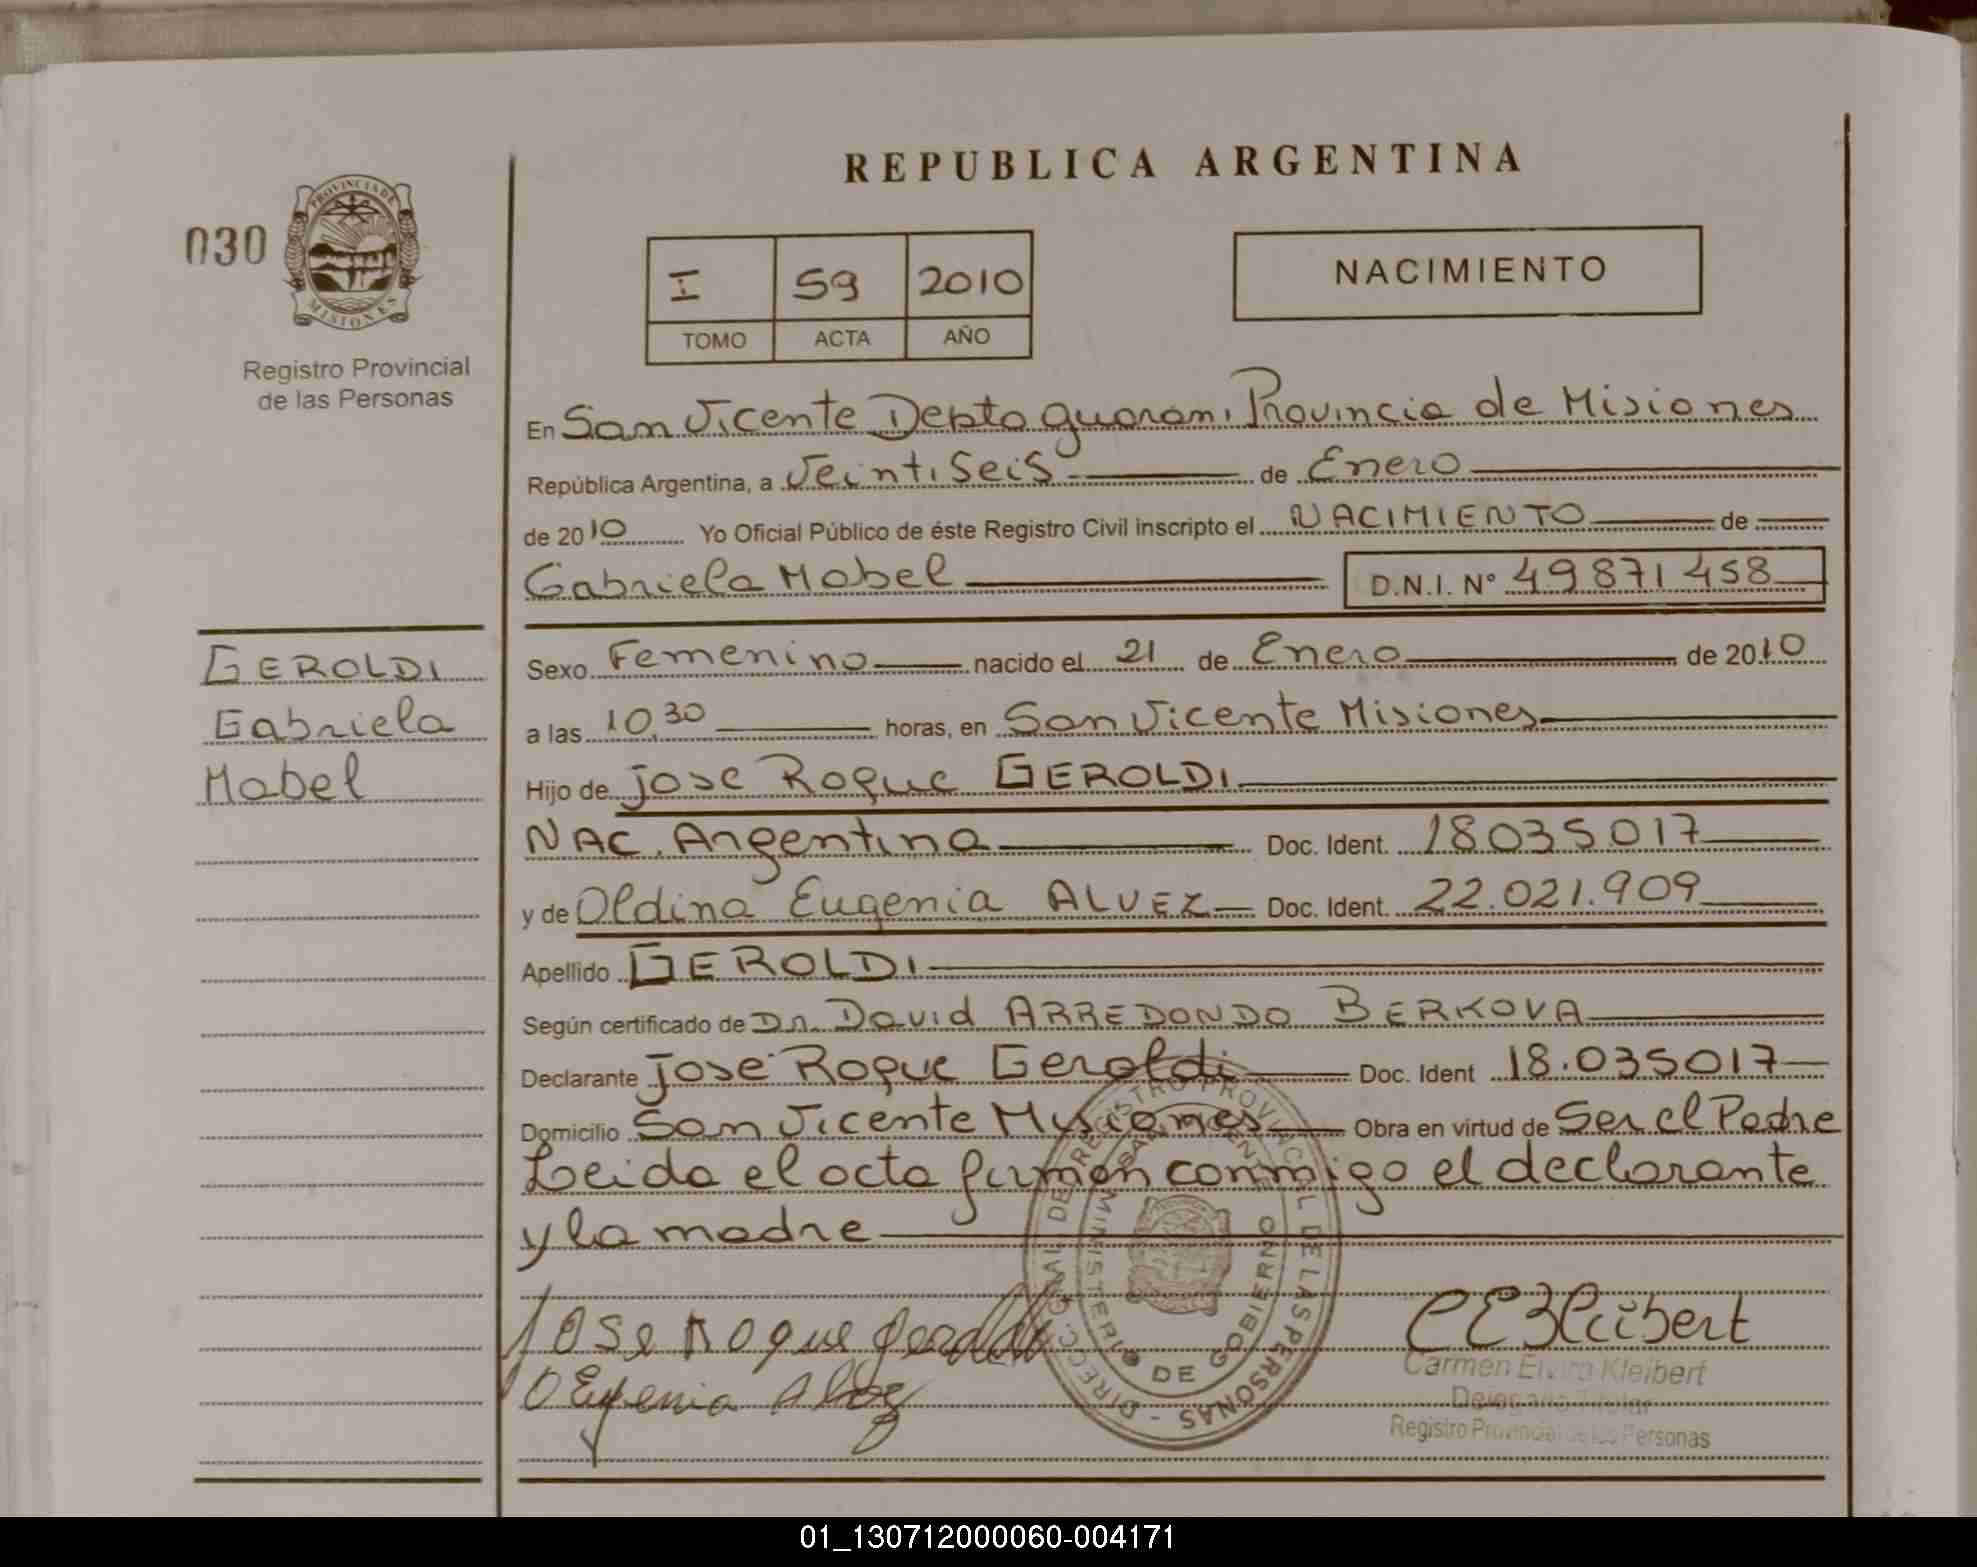 REPUBLICA ARGENTINA
030
PROVINCIA DE
MISIONES
Registro Provincial
de las Personas
I 59 2010
TOMO ACTA AÑO
NACIMIENTO
En San Vicente Depto guarani Provincia de Misiones
República Argentina, a Veintiseis de Enero
de 2010 Yo Oficial Público de éste Registro Civil inscripto el NACIMIENTO de
Gabriela Mabel D.N.I. N° 49871458
GEROLDI
Gabriela
Mabel
Sexo Femenino nacido el 21 de Enero de 2010
a las 10,30 horas, en San Vicente Misiones
Hijo de jose Roque GEROLDI
NAC. Argentina Doc. Ident. 18035017
y de Oldina Eugenia ALVEZ Doc. Ident. 22.021.909
Apellido GEROLDI
Según certificado de Dr. David ARREDONDO BERKOVA
Declarante jose Roque Geroldi Doc. Ident 18.035017
Domicilio San Vicente Misiones Obra en virtud de Ser el Padre
Leida el acta firman conmigo el declarante
y la madre
Jose Roque Geroldi
O Eugenia Alvez
CEKleibert
Carmen Elvira Kleibert
Delegada Titular
Registro Provincial de las Personas
DIRECC. GRAL. DE REGISTRO PROVINCIAL DE LAS PERSONAS -
MINISTERIO DE GOBIERNO
01_130712000060-004171